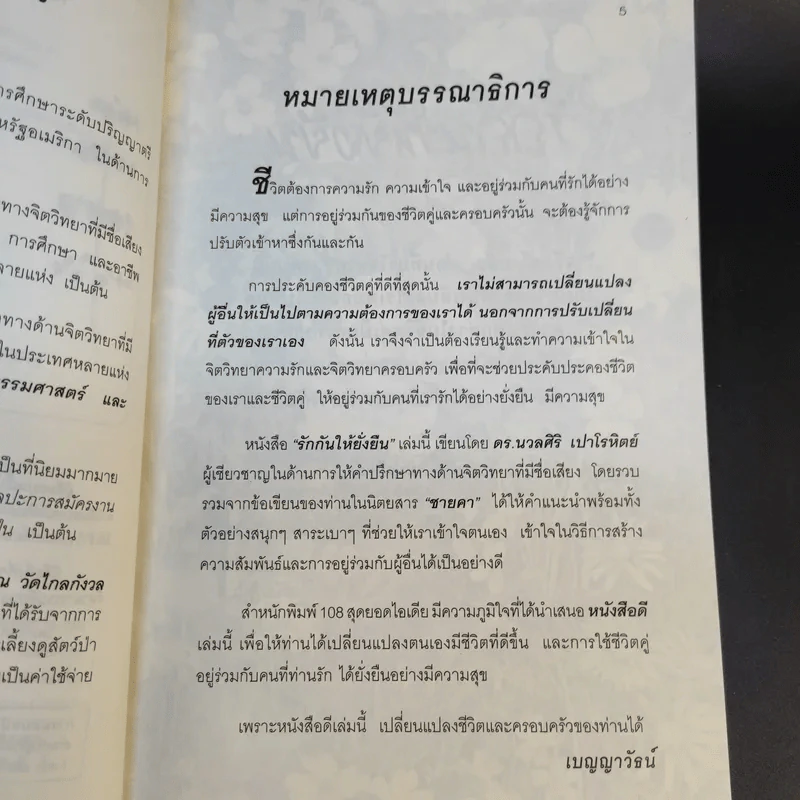 ารศึกษาระดับปริญญาตรี
หรัฐอเมริกา ในด้านการ
ทางจิตวิทยาที่มีชื่อเสียง
การศึกษา และอาชีพ
ลายแห่ง เป็นต้น
ทางด้านจิตวิทยาที่มี
ในประเทศหลายแห่ง
รรมศาสตร์ และ
เป็นที่นิยมมากมาย
ลปะการสมัครงาน
เป็นต้น
ณ วัดไกลกังวล
ที่ได้รับจากการ
เลี้ยงดูสัตว์ป่า
เป็นค่าใช้จ่าย
5
หมายเหตุบรรณาธิการ
ชีวิตต้องการความรัก ความเข้าใจ และอยู่ร่วมกับคนที่รักได้อย่าง
มีความสุข แต่การอยู่ร่วมกันของชีวิตคู่และครอบครัวนั้น จะต้องรู้จักการ
ปรับตัวเข้าหาซึ่งกันและกัน
การประคับคองชีวิตคู่ที่ดีที่สุดนั้น เราไม่สามารถเปลี่ยนแปลง
ผู้อื่นให้เป็นไปตามความต้องการของเราได้ นอกจากการปรับเปลี่ยน
ที่ตัวของเราเอง ดังนั้น เราจึงจำเป็นต้องเรียนรู้และทำความเข้าใจใน
จิตวิทยาความรักและจิตวิทยาครอบครัว เพื่อที่จะช่วยประคับประคองชีวิต
ของเราและชีวิตคู่ ให้อยู่ร่วมกับคนที่เรารักได้อย่างยั่งยืน มีความสุข
หนังสือ “รักกันให้ยั่งยืน” เล่มนี้ เขียนโดย ดร.นวลศิริ เปาโรหิตย์
ผู้เชี่ยวชาญในด้านการให้คำปรึกษาทางด้านจิตวิทยาที่มีชื่อเสียง โดยรวบ
รวมจากข้อเขียนของท่านในนิตยสาร “ชายคา” ได้ให้คำแนะนำพร้อมทั้ง
ตัวอย่างสนุกๆ สาระเบาๆ ที่ช่วยให้เราเข้าใจตนเอง เข้าใจในวิธีการสร้าง
ความสัมพันธ์และการอยู่ร่วมกับผู้อื่นได้เป็นอย่างดี
สำหนักพิมพ์ 108 สุดยอดไอเดีย มีความภูมิใจที่ได้นำเสนอ หนังสือดี
เล่มนี้ เพื่อให้ท่านได้เปลี่ยนแปลงตนเองมีชีวิตที่ดีขึ้น และการใช้ชีวิตคู่
อยู่ร่วมกับคนที่ท่านรัก ได้ยั่งยืนอย่างมีความสุข
เพราะหนังสือดีเล่มนี้ เปลี่ยนแปลงชีวิตและครอบครัวของท่านได้
เบญญาวัธน์